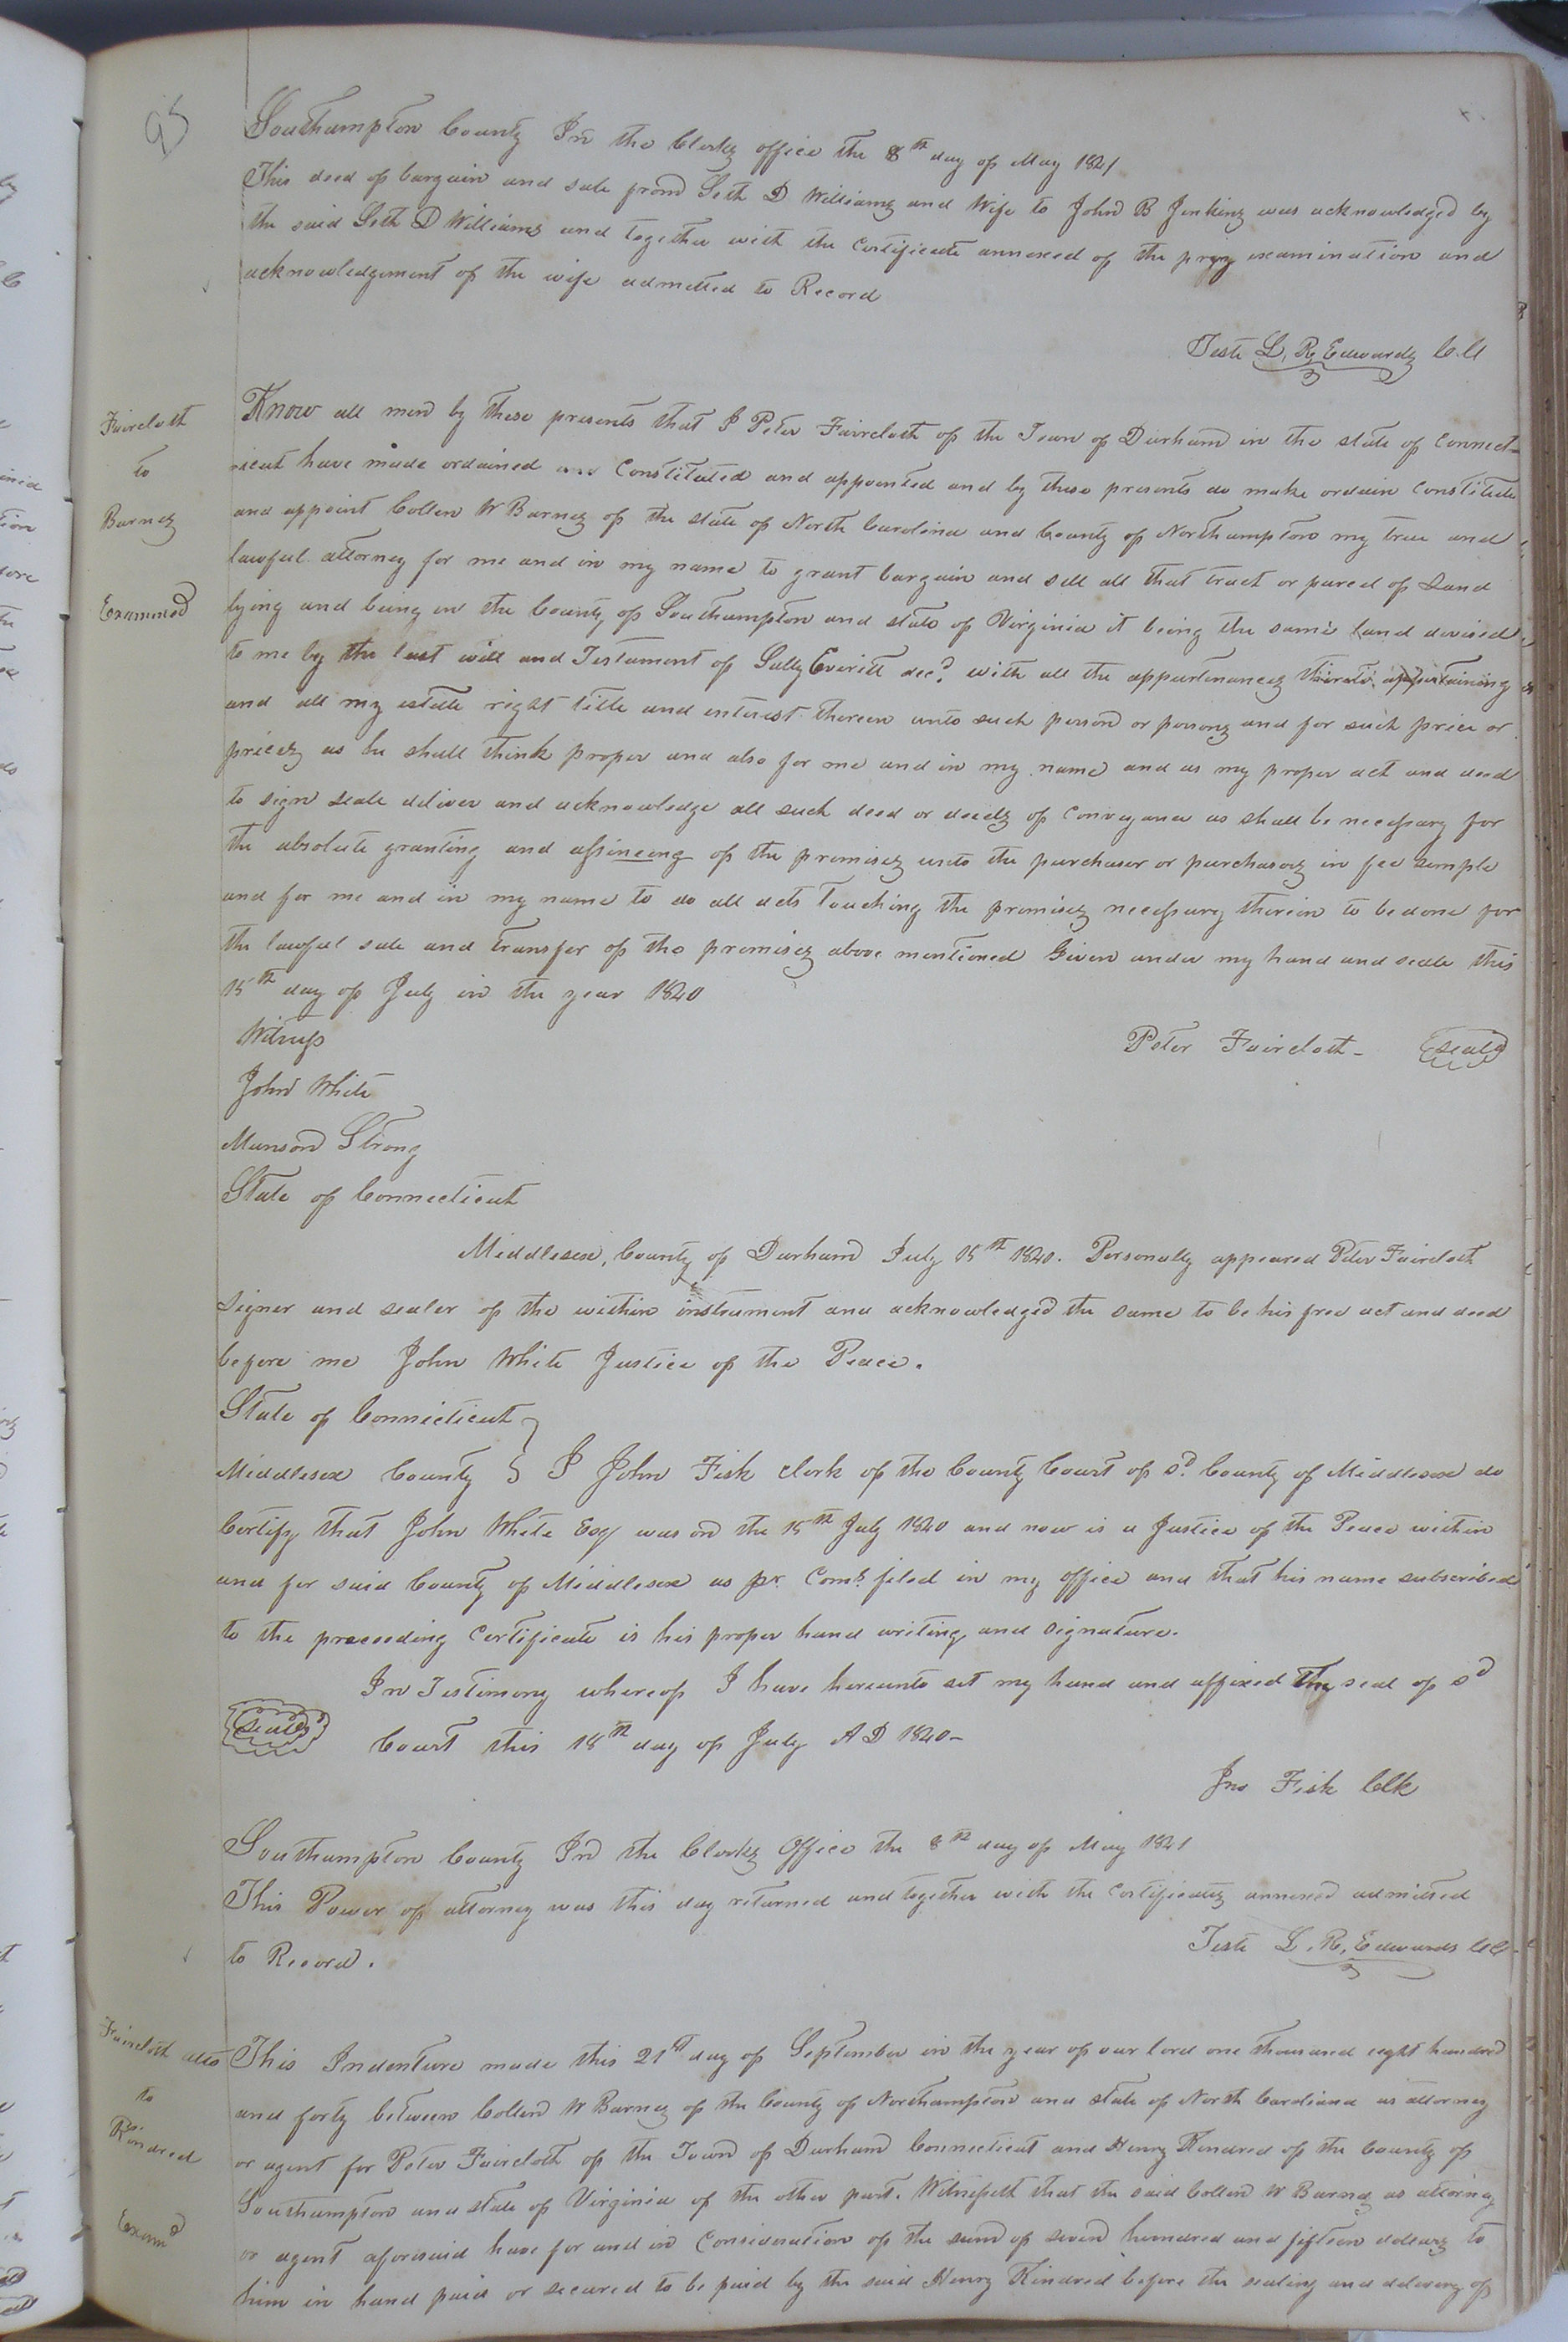 95
Southampton County In the Clerks office the 8th day of May 1841
This deed of bargain and sale from Seth D Williams and Wife to John B Jenkins was acknowledged by
the said Seth D Williams and together with the Certificate annexed of the privy examination and
acknowledgement of the wife admitted to Record
Teste L. R. Edwards C.C
Faircloth
to
Barnes
Examined
Know all men by these presents that I Peter Faircloth of the Town of Durham in the state of Connect-
icut have made ordained and Constituted and appointed and by these presents do make ordain Constitute
and appoint Collen W Barnes of the state of North Carolina and County of Northampton my true and
lawful attorney for me and in my name to grant bargain and sell all that tract or parcel of Land
lying and being in the County of Southampton and state of Virginia it being the same land devised
to me by the last will and Testament of Sally Everitt decd. with all the appurtenances thereto appertaining
and all my estate right title and interest therein unto such person or persons and for such price or
prices as he shall think proper and also for me and in my name and as my proper act and deed
to sign seale deliver and acknowledge all such deed or deeds of Conveyance as shall be necessary for
the absolute granting and assineing of the premises unto the purchaser or purchasers in fee simple
and for me and in my name to do all acts touching the premises necessary therein to be done for
the lawful sale and transfer of the premises above mentioned Given under my hand and seale this
15th day of July in the year 1840
Witness
Peter Faircloth - Seal
John White
Munson Strong
State of Connecticut
Middlesex, County of Durham July 15th 1840. Personally appeared Peter Faircloth
signer and sealer of the within instrument and acknowledged the same to be his free act and deed
before me John White Justice of the Peace.
State of Connecticut
Middlesex County } I John Fisk clerk of the County Court of sd. County of Middlesex do
Certify that John White Esq was on the 15th July 1840 and now is a Justice of the Peace within
and for said County of Middlesex as pr. Coms. filed in my office and that his name subscribed
to the preceeding Certificate is his proper hand writing and signature.
In Testimony whereof I have hereunto set my hand and affixed the seal of sd
Seal
Court this 18th day of July A D 1840-
Jno Fisk Clk
Southampton County In the Clerks Office the 8th day of May 1841
This Power of attorney was this day returned and together with the Certificates annexed admitted
to Record.
Teste L. R. Edwards CC
Faircloth atto
to
Kindred
Examd
This Indenture made this 21st day of September in the year of our lord one thousand eight hundred
and forty between Collen W Barnes of the County of Northampton and state of North Carolina as attorney
or agent for Peter Faircloth of the Town of Durham Connecticut and Henry Kindred of the County of
Southampton and state of Virginia of the other part. Witnesseth that the said Collen W Barnes as attorney
or agent aforesaid have for and in Consideration of the sum of seven hundred and fifteen dollars to
him in hand paid or secured to be paid by the said Henry Kindred before the sealing and delivery of